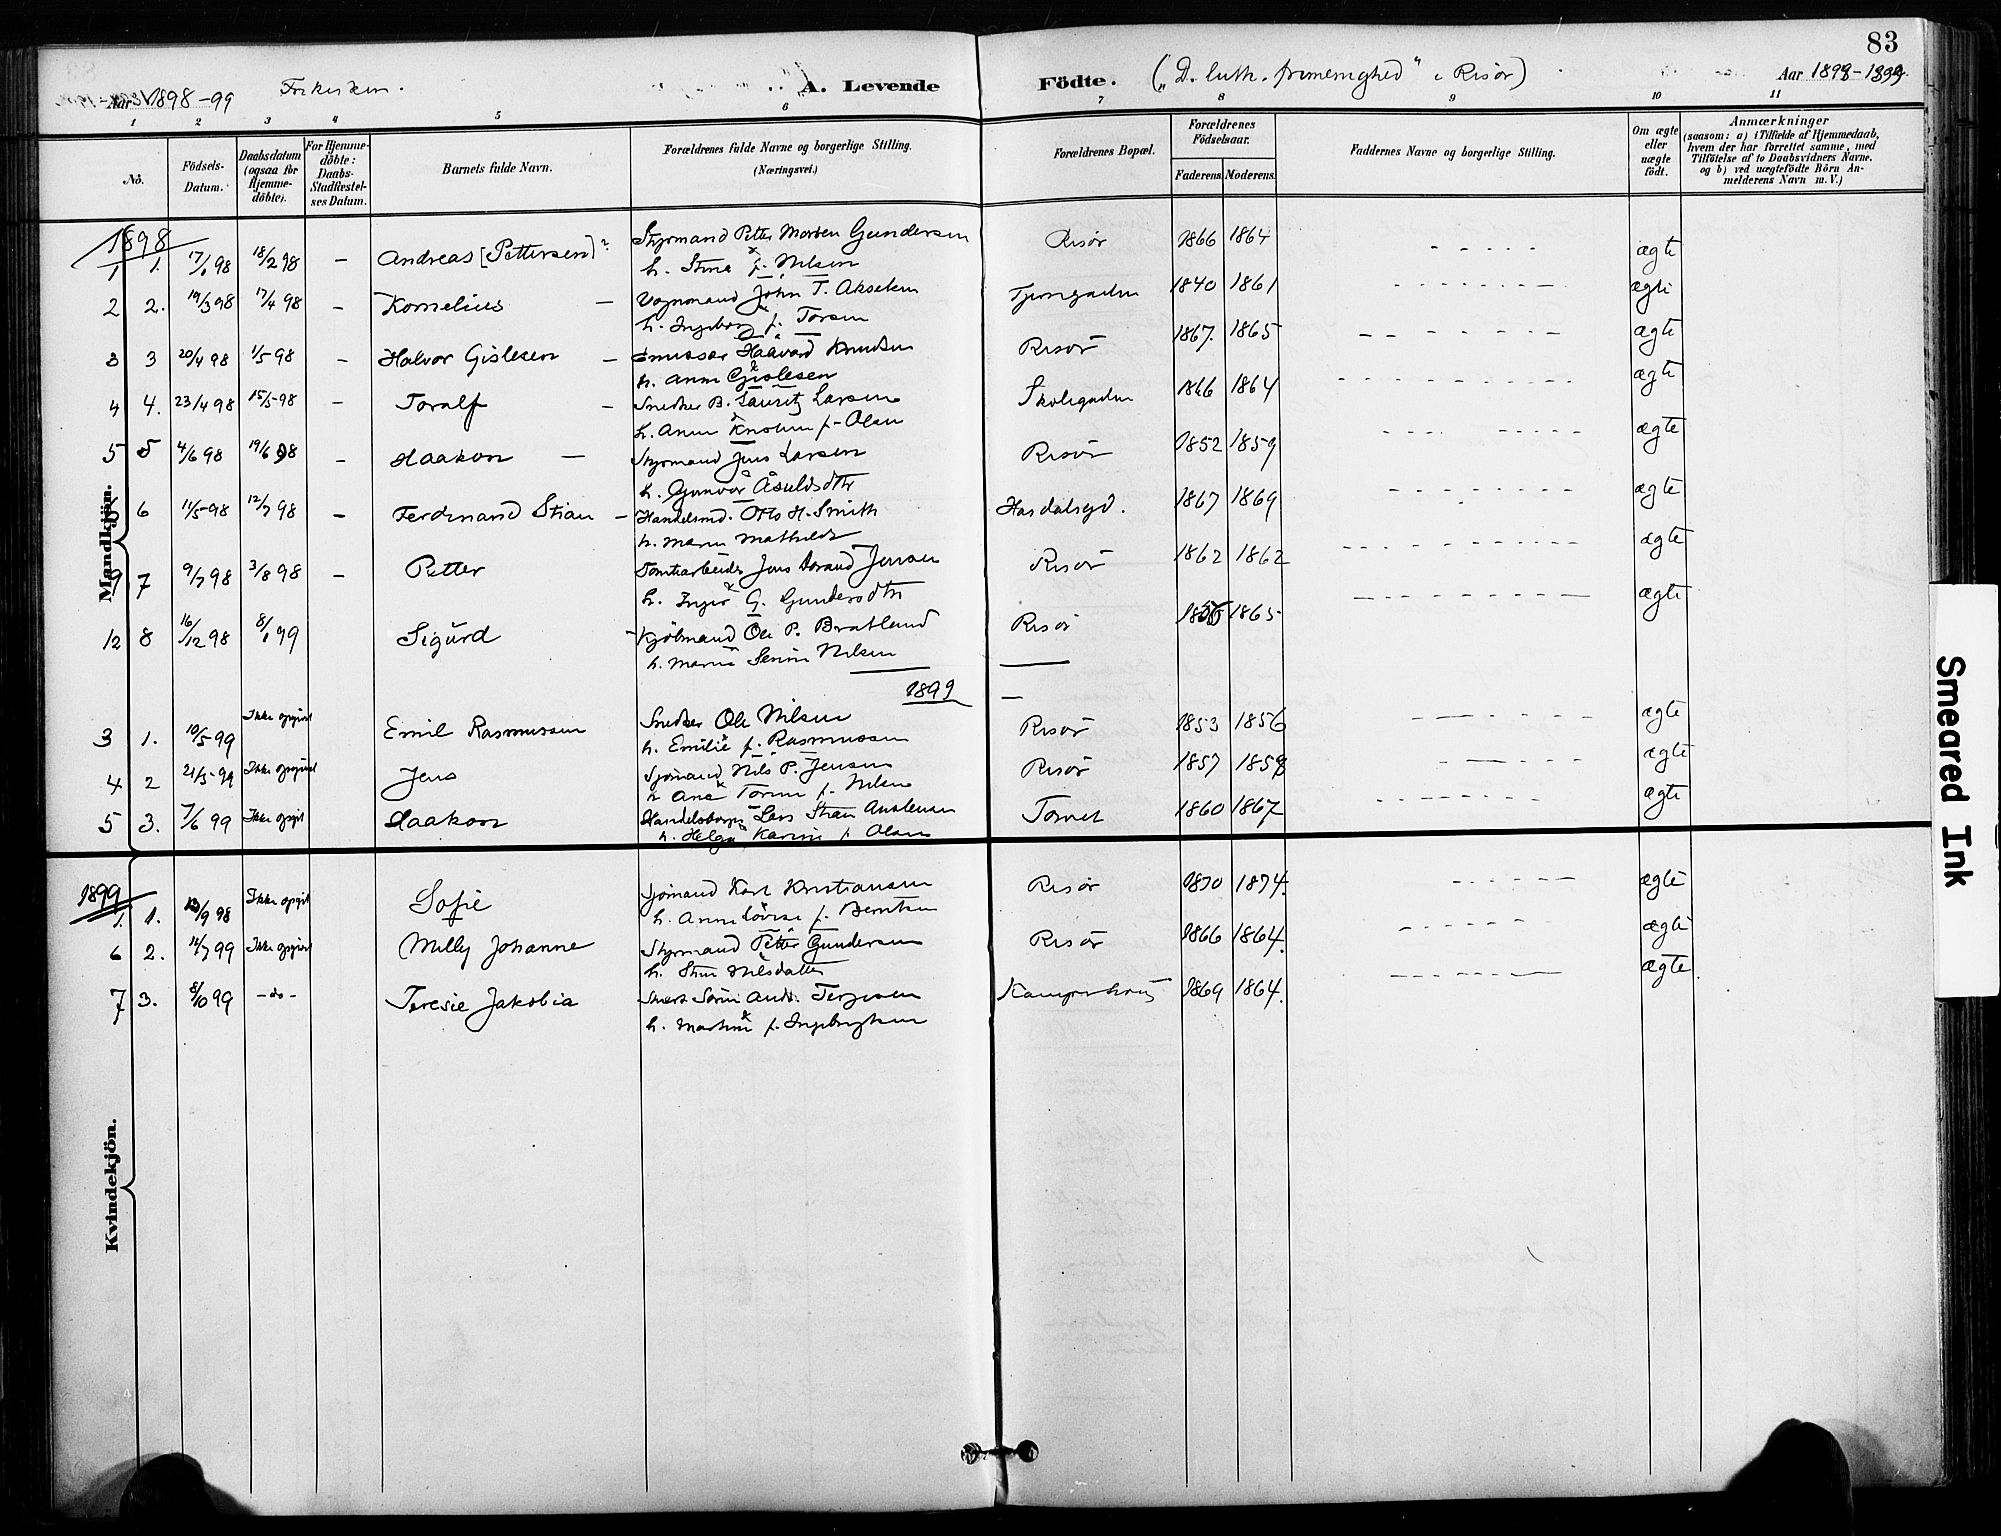 83
Aar 1898-99
Frikirken.
A. Levende Födte.
("D. luth. frimenighed" i Risør)
Aar 1898-1899
1 2 3 4 5 6 7 8 9 10 11
No.
Födsels-Datum.
Daabsdatum (ogsaa for Hjemme-döbte).
For Hjemme-döbte: Daabs-Stadfæstel-ses Datum.
Barnets fulde Navn.
Forældrenes fulde Navne og borgerlige Stilling.
(Næringsvei.)
Forældrenes Bopæl.
Forældrenes Födselsaar.
Faderens. Moderens.
Faddernes Navne og borgerlige Stilling.
Om ægte eller uægte født.
Anmærkninger
(saasom: a) i Tilfælde af Hjemmedaab, hvem der har forrettet samme, med Tilföielse af to Daabsvidners Navne. og b) ved uægtefödte Börn Anmelderens Navn m. V.)
Mandkjön.
1898
1 1. 17/1 98 18/2 98 - Andreas [Pettersen]? Styrmand Petter Morten Gundersen Risør 1866 1864 ægte
h. Stina f. Nilsen
2 2. 19/3 98 17/4 98 - Kornelius - Vognmand John T. Akselsen 1840 1861 ægte
h. Ingeborg f. Torsen
3 3 20/4 98 1/5 98 - Halvor Gislesen - Haavard Knudsen Risør 1867. 1865 ægte
h. Anne Gislesen
4 4. 23/4 98 15/5-98 - Toralf - Snedker B. Lauritz Larsen Skolegaden 1866 1864 ægte
h. Anne f. Olsen
5 5 4/6 98 19/6 98 - Haakon - Styrmand Jens Larsen Risør 1852 1859 ægte
h. Gunvor
6 11/5-98 12/7 98 - Ferdinand Stian - Handelsmd. Otto H. Smith 1867 1869 ægte
h. Maren Mathilde
9 7 9/7 98 3/8 98 - Petter Tomtearbeider Jens Jensen Risør 1862 1862 ægte
h. Inger G. Gundersdtr
12 8 16/12 98 8/1 99 Sigurd - Ole P. Bratland Risør 1865 ægte
h. Marie Serine Nilsen
1899
3 1. 10/5 99 Ikke opgivet Emil Rasmussen Snedker Ole Nilsen Risør 1853 1856 ægte
h. Emilie f. Rasmussen
4 2 21/5-99 Ikke opgivet Jens Sjømand Nils P. Jensen Risør 1857 1858 ægte
h. Ane Torine f. Nilsen
5 3. 7/6 99 Ikke opgivt Haakon Lars Stian Torvet 1860 1867 ægte
h. Helga Karine f. Olsen
Kvindekjön.
1899
1. 1. /9 98 Ikke opgivt Sofie Sjømand Karl Kristiansen Risør 1870 1874. ægte
h. Anne Lovise f. Berntsen
6 2. 12/7 99 Ikke opgivet Milly Johanne Styrmand Petter Gundersen Risør 1866 1864. ægte
h. Stine Nilsdatter
7 3. 8/10 99 -do- Teresie Jakobia Søren Andr. Terjesen 1869 1864. ægte
h. Martine f. Ingebrigtsen
Smeared Ink